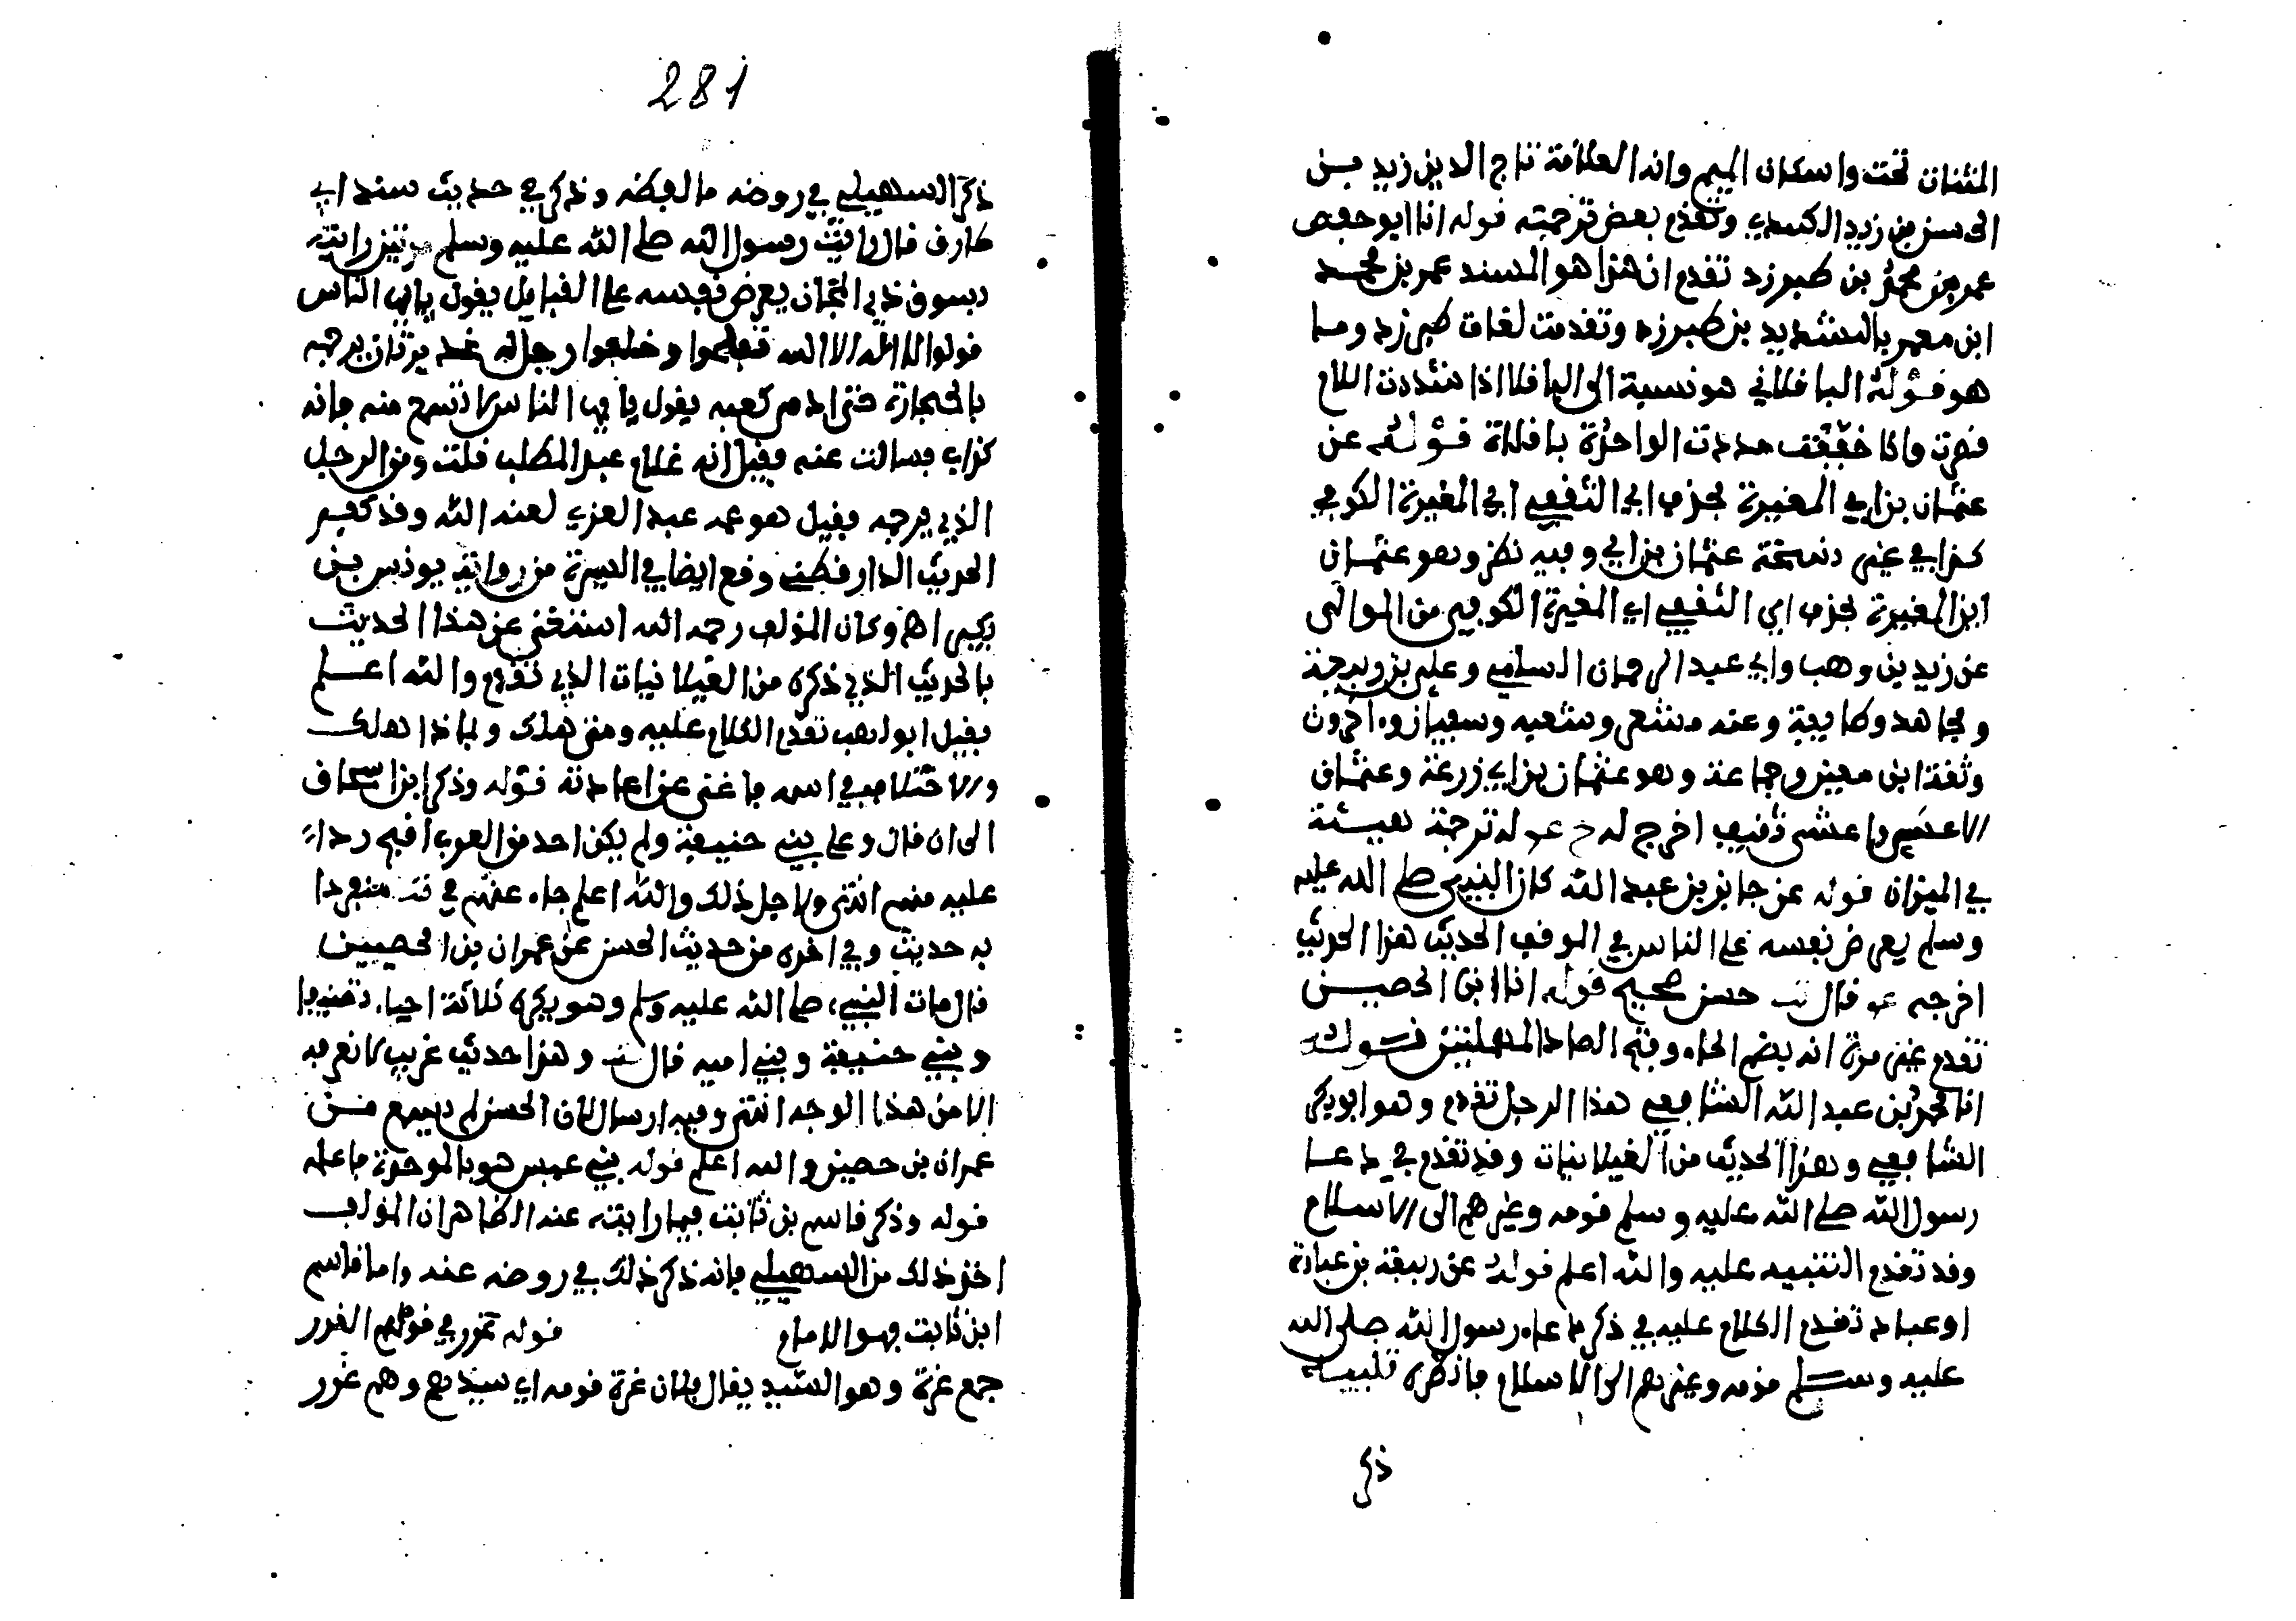 المثناة تحت واسكان الميم وانه العلامة تاج الدين زيد بن
الحسن بن زيد الكندي وتقدم بعض ترجمته قوله انا ابو حفص
عمر بن محمد بن طبرزد تقدم ان هذا هو المسند عمر بن محمد
ابن معمر بالتشديد بن طبرزد وتقدمت لغات طبرزد وما
هو قوله الباقلاني هو نسبة الى الباقلا اذا شددت اللام
قصرت واذا خففت مددت الواحدة باقلاة قوله عن
عثمان بن ابي المغيرة بحذف ابي الثقفي ابي المغيرة الكوفي
كذا في غير نسخة عثمان بن ابي وفيه نظر وهو عثمان
ابن المغيرة بحذف ابي الثقفي ابي المغيرة الكوفي من الموالى
عن زيد بن وهب وابي عبد الرحمان السلمي وعلي بن ربيعة
ومجاهد وطايفة وعنه مسعر وشعبه وسفيان واخرون
وثقه ابن معين وجماعة وهو عثمان بن ابي زرعة وعثمان
الاعشى واعشى ثقيف اخرج له خ عو له ترجمة هينة
في الميزان قوله عن جابر بن عبد الله كان النبي صلى الله عليه
وسلم يعرض نفسه على الناس في الموقف الحديث هذا الحديث
اخرجه عو قال ت حسن صحيح قوله انا ابن الحصين
تقدم غير مرة انه بضم الحاء وفتح الصاد المهملتين قوله
انا محمد بن عبد الله الشافعي هذا الرجل تقدم وهو ابو بكر
الشافعي وهذا الحديث من الغيلانيات وقد تقدم في دعا
رسول الله صلى الله عليه وسلم قومه وغيرهم الى الاسلام
وقد تقدم التنبيه عليه والله اعلم قوله عن ربيعة بن عبادة
او عباد تقدم الكلام عليه في ذكر دعاء رسول الله صلى الله
عليه وسلم قومه وغيرهم الى الاسلام فانظره تنبيه
ذكر
281
ذكر السهيلي في روضه ما لفظه وذكر في حديث سند ابي
طارق قال رايت رسول الله صلى الله عليه وسلم مرتين رايته
بسوق ذي المجاز يعرض نفسه على القبايل يقول يا ايها الناس
قولوا لا اله الا الله تفلحوا وخلفوا رجل له غديرتان يرجمه
بالحجارة حتى ادمى كعبه يقول يا ايها الناس لا تسمع منه فانه
كذاب فسالت عنه فقيل انه غلام عبد المطلب قلت ومن الرجل
الذي يرجمه فقيل هو عمه عبد العزى لعنه الله وقد ذكر
الحديث الدارقطني وقع ايضا في السيرة من رواية يونس بن
بكير اهـ وكان المؤلف رحمه الله استغنى عن هذا الحديث
بالحديث الذي ذكره من الغيلانيات الذي تقدم والله اعلم
فقيل ابو لهب تقدم الكلام عليه ومتى هلك ولماذا هلك
والاختلاف في اسمه فاغنى عن اعادته قوله وذكر ابن اسحاق
الى ان قال وعلى بني حنيفة ولم يكن احد من العرب اقبح ردا
عليه منهم انتهى ولاجل ذلك والله اعلم جاء عنهم في ت منفردا
به حديث وفي اخره من حديث الحسن عن عمران بن الحصين
قال مات النبي صلى الله عليه وسلم وهو يكره ثلاثة احياء ثقيفا
وبني حنيفة وبني امية قال ت وهذا حديث غريب لا نعرفه
الا من هذا الوجه انتهى وفيه ارسال لان الحسن لم يسمع من
عمران بن حصين والله اعلم قوله بني عبس هو بالموحدة فاعلمه
قوله وذكر قاسم بن ثابت فيما رايته عنه الظاهر ان المؤلف
اخذ ذلك من السهيلي فانه ذكر ذلك في روضه عنه واما قاسم
ابن ثابت فهو الامام قوله تخور في قولهم الغرر
جمع غرة وهو السيد يقال فلان غرة قومه اي سيدهم وهم غرر